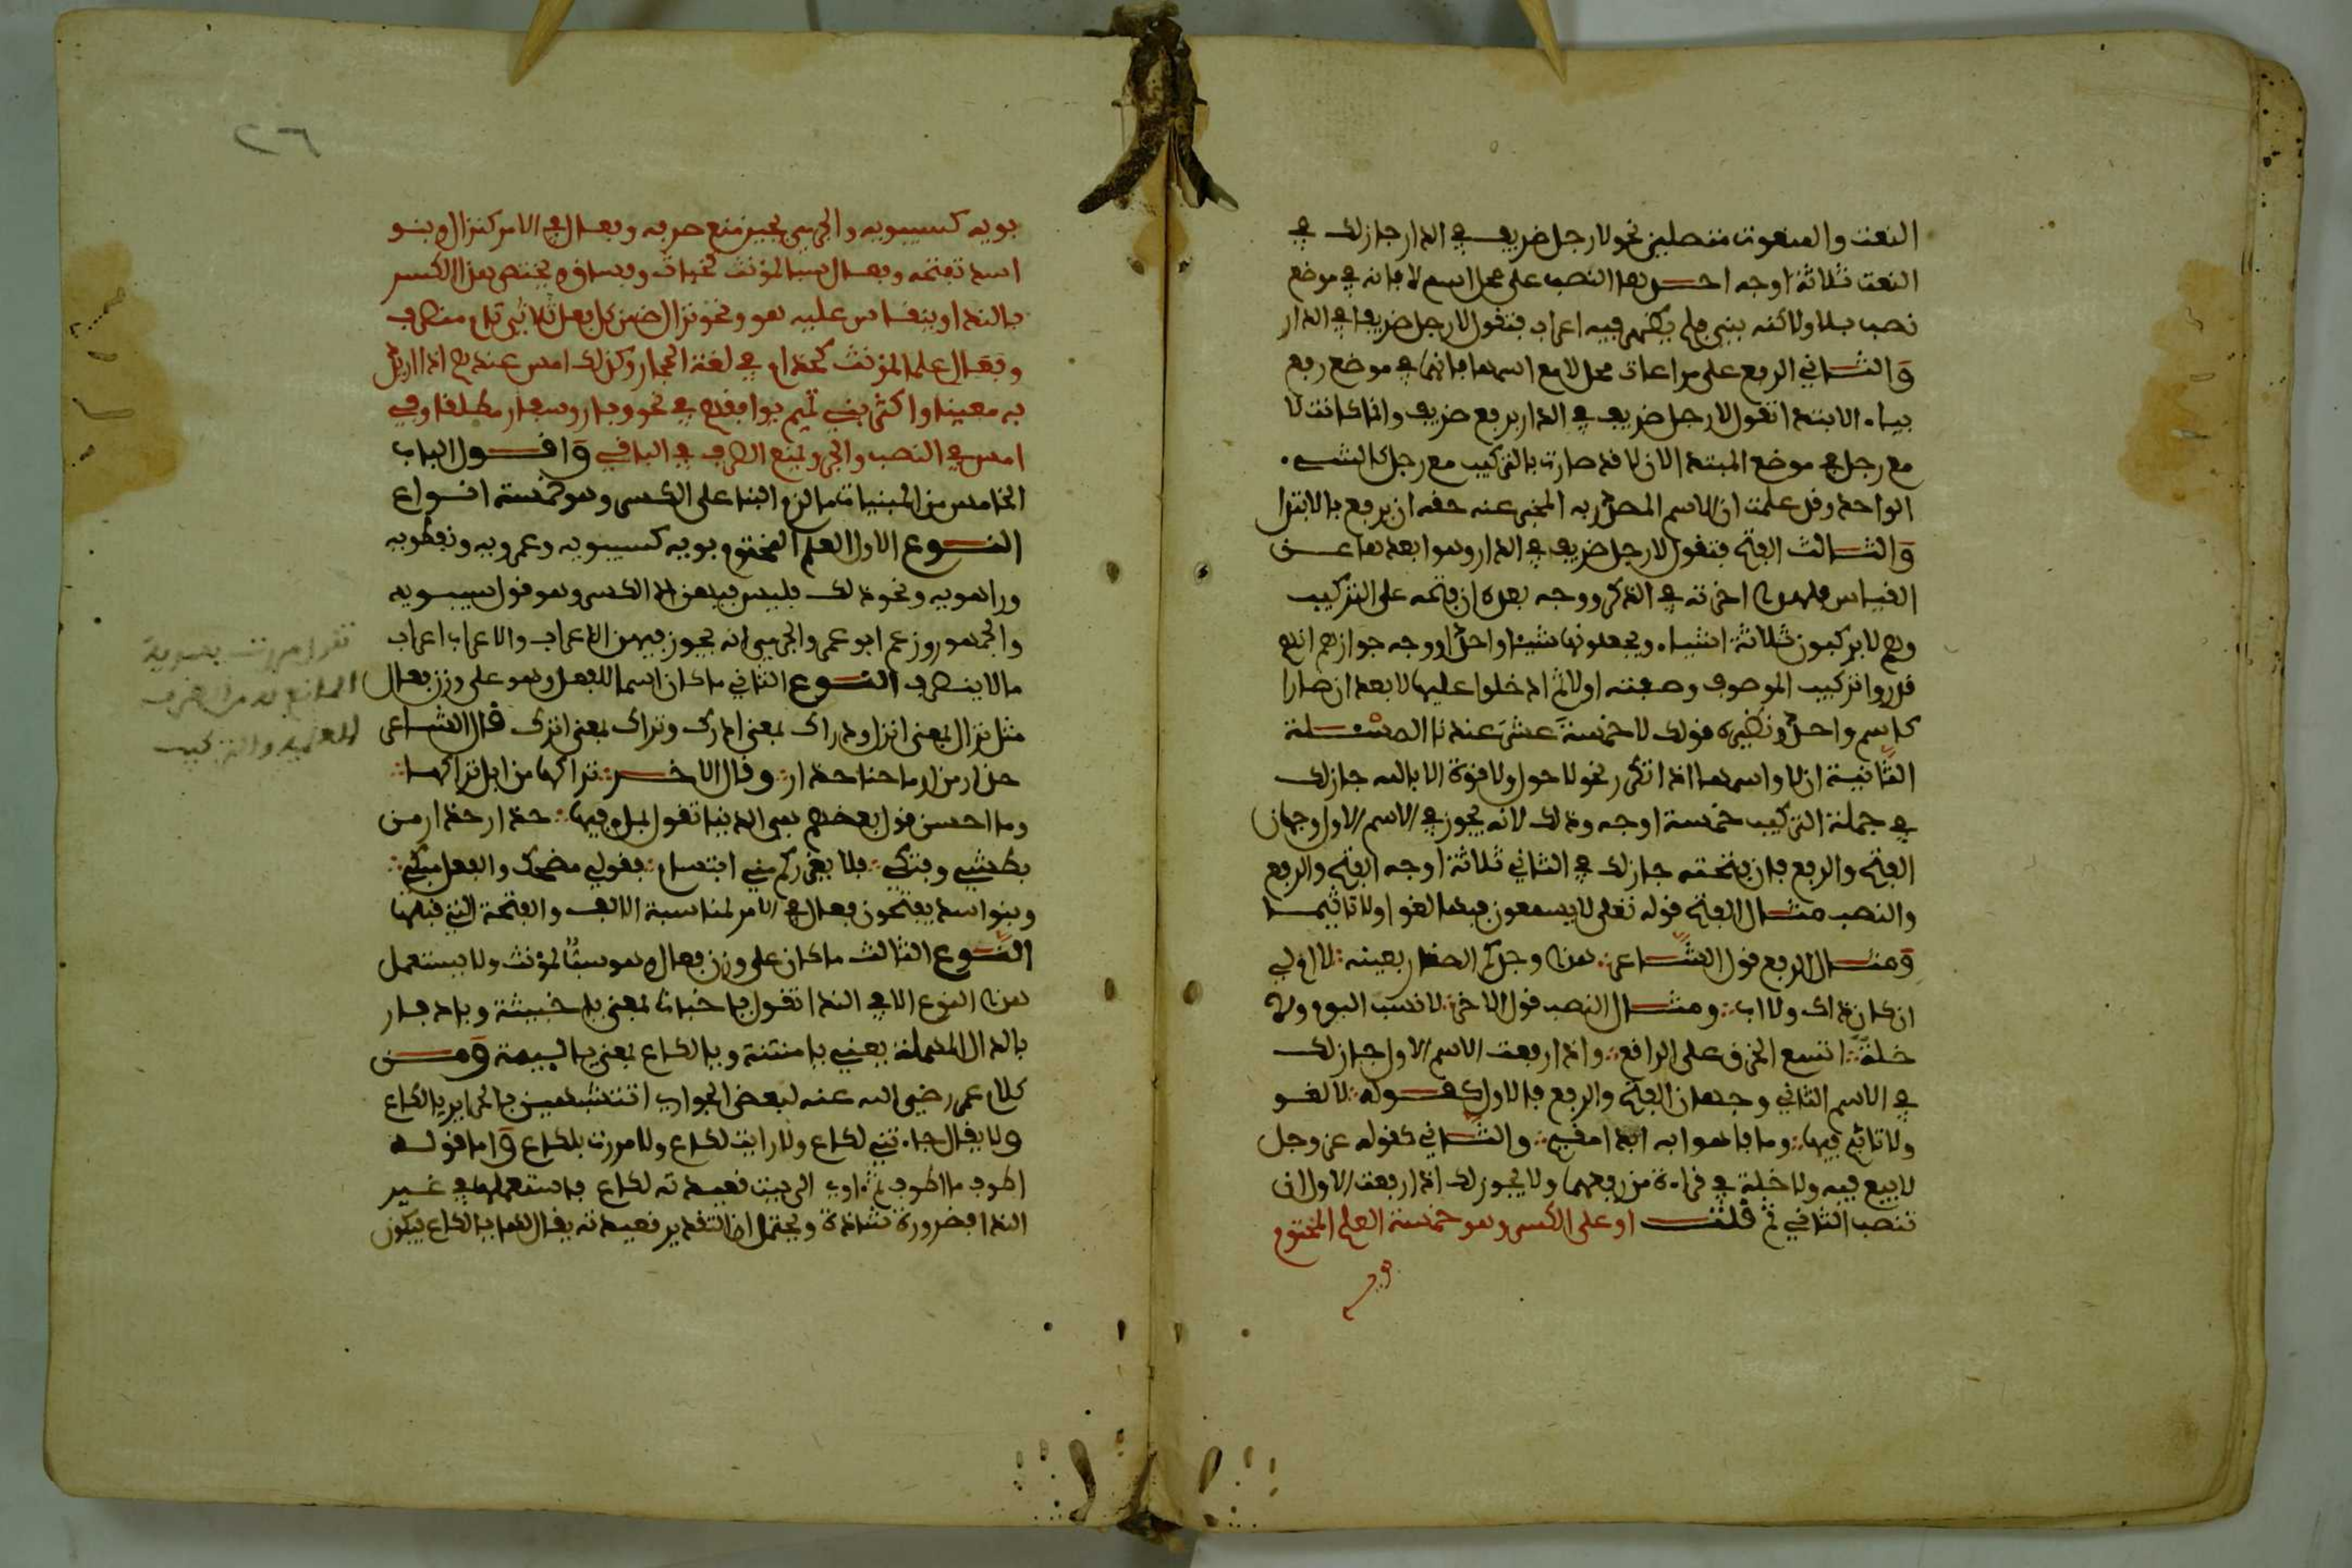 النعت والمنعوت متصلين نحو لا رجل ظريف في الدار جاز لك في
النعت ثلاثة اوجه احسنها النصب على محل اسم لا فانه في موضع
نصب بلا ولاكنه بني فلم يظهر فيه اعراب فتقول لا رجل ظريفا في الدار
والثاني الرفع على مراعات محل لا مع اسمها فانهما في موضع رفع
بـالابتدا تقول لا رجل ظريف في الدار برفع ظريف وانما كانت لا
مع رجل في موضع المبتدا لان لا قد صارت بالتركيب مع رجل كالشيء
الواحد وقد علمت ان الاسم المصدر به المخبر عنه حقه ان يرفع بالابتدا
والثالث الفتح فتقول لا رجل ظريف في الدار وهو ابعدها عن
القياس فلهذا اخرته في الذكر ووجه بعده ان فتحه على التركيب
وهم لا يركبون ثلاثة اشياء ويجعلونها شيئا واحدا ووجه جوازه انهم
قدروا تركيب الموصوف وصفته اولا ثم ادخلوا عليهما لا بعد ان صارا
كاسم واحد ونظيره قولك لا خمسة عشر عندنا المسئلة
الثانية ان لا واسمها اذا تكرر نحو لا حول ولا قوة الا بالله جاز لك
في جملة التركيب خمسة اوجه وذلك لانه يجوز في الاسم الاول وجهان
الفتح والرفع فان فتحته جاز لك في الثاني ثلاثة اوجه الفتح والرفع
والنصب مثال الفتح قوله تعلى لا يسمعون فيها لغوا ولا تاثيما
ومثال الرفع قول الشاعر هذا وجدكم الصغار بعينه لا ام لي
ان كان ذاك ولا اب ومثال النصب قول الاخر لا نسب اليوم ولا
خلة اتسع الخرق على الراقع واذا رفعت الاسم الاول جاز لك
في الاسم الثاني وجهان الفتح والرفع فالاول كقوله لا لغو
ولا تاثيم فيها وما فاهوا به ابدا مقيم والثاني كقوله عز وجل
لا بيع فيه ولا خلة في قراءة من رفعهما ولا يجوز لك اذا رفعت الاول ان
تنصب الثاني ثم قلت او على الكسر وهو خمسة العلم المختوم
٢٦
بويه كسيبويه والجرمي يجيز منع صرفه وفعال في الامر كنزال وبنو
اسد تفتحه وفعال سبا للمؤنث كخباث وفساق ويختص هذا الكسر
بالندا وينقاس عليه هو ونحو نزال من كل فعل ثلاثي تام متصرف
وفعال علما للمؤنث كحذام في لغة الحجاز وكذلك امس عندهم اذا اريد
به معينا واكثر بني تميم يوافقهم في نحو وبار وسفار مطلقا وفي
امس في النصب والجر ويمنع الصرف في الباقي واقول الباب
الخامس من المبنيات ما لزم البنا على الكسر وهو خمسة انواع
النوع الاول العلم المختوم بويه كسيبويه وعمرويه ونفطويه
وراهويه ونحو ذلك فليس فيهن الا الكسر وهو قول سيبويه
والجمهور وزعم ابو عمر والجرمي انه يجوز فيهن الاعراب والاعراب اعراب
ما لا ينصرف النوع الثاني ما كان اسما للفعل وهو على وزن فعال
مثل نزال بمعنى انزل ودراك بمعنى ادرك وتراك بمعنى اترك قال الشاعر
حذار من ارماحنا حذار وقال الاخر تراكها من ابل تراكها
وما احسن قول بعضهم هي الدنيا تقول بملء فيها حذار حذار من
بطشي وفتكي فلا يغرركم مني ابتسام فقولي مضحك والفعل مبكي
وبنو اسد يفتحون فعال في الامر لمناسبة الالف والفتحة التي قبلها
النوع الثالث ما كان على وزن فعال وهو سب للمؤنث ولا يستعمل
هذا النوع الا في الندا تقول يا خباث بمعنى يا خبيثة ويا دفار
بالدال المهملة بمعنى يا منتنة ويا لكاع بمعنى يا لئيمة ومن
كلام عمر رضي الله عنه لبعض الجواري اتتشبهين بالحراير يا لكاع
ولا يقال جاءتني لكاع ولا رايت لكاع ولا مررت بلكاع واما قوله
اطوف ما اطوف ثم اوي الى بيت قعيدته لكاع فاستعملها في غير
الندا فضرورة شاذة ويحتمل ان التقدير قعيدته يقال لها يا لكاع فيكون
تقول مررت بسيبويه
المانع له من الصرف
العلمية والتركيب